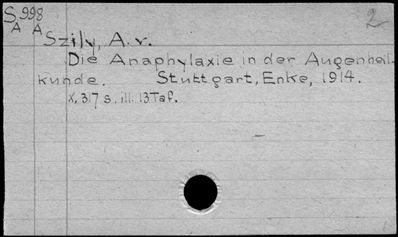 S.998
A A
2
Szily, A. v.
Die Anaphylaxie in der Augenheil
kunde. Stuttgart, Enke, 1914.
X, 317 s. ill. 13 Taf.